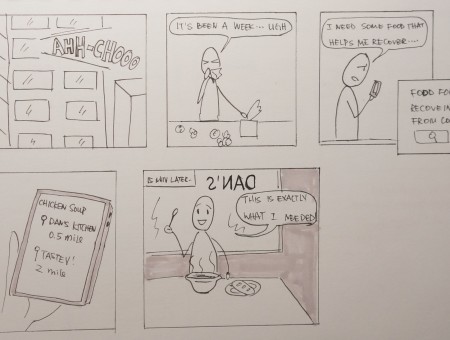 AHH-CHOOO
IT'S BEEN A WEEK... UGH
I NEED SOME FOOD THAT
HELPS ME RECOVER....
FOOD FO
RECOVEIN
FROM CO
CHICKEN SOUP
DANS KITCHEN
0.5 mile
TASTEY!
2 mile
15 MIN LATER-
DAN'S
THIS IS EXACTLY
WHAT I NEEDED